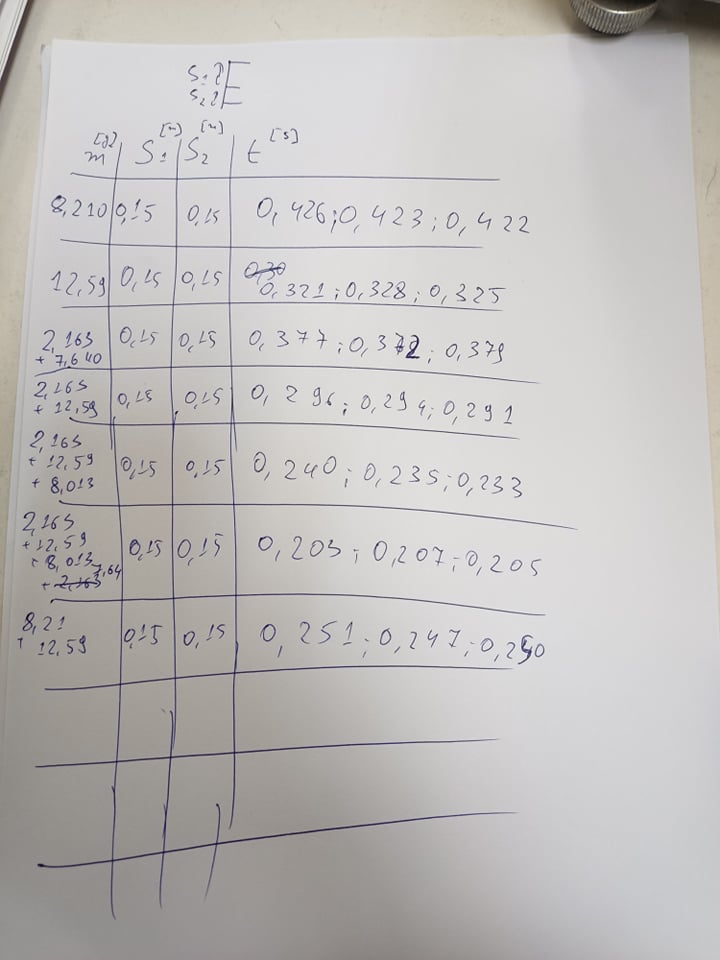 m [g] S1 [m] S2 [m] t [s]
8,210 0,15 0,15 0,426; 0,423; 0,422
12,59 0,15 0,15 0,321; 0,328; 0,325
2,163
+ 7,640 0,15 0,15 0,377; 0,372; 0,379
2,163
+ 12,59 0,15 0,15 0,296; 0,294; 0,291
2,163
+ 12,59 0,15 0,15 0,240; 0,235; 0,233
+ 8,013
2,163
+ 12,59 0,15 0,15 0,203; 0,207; 0,205
+ 8,013
+ 7,64
8,21
+ 12,59 0,15 0,15 0,251; 0,247; 0,250